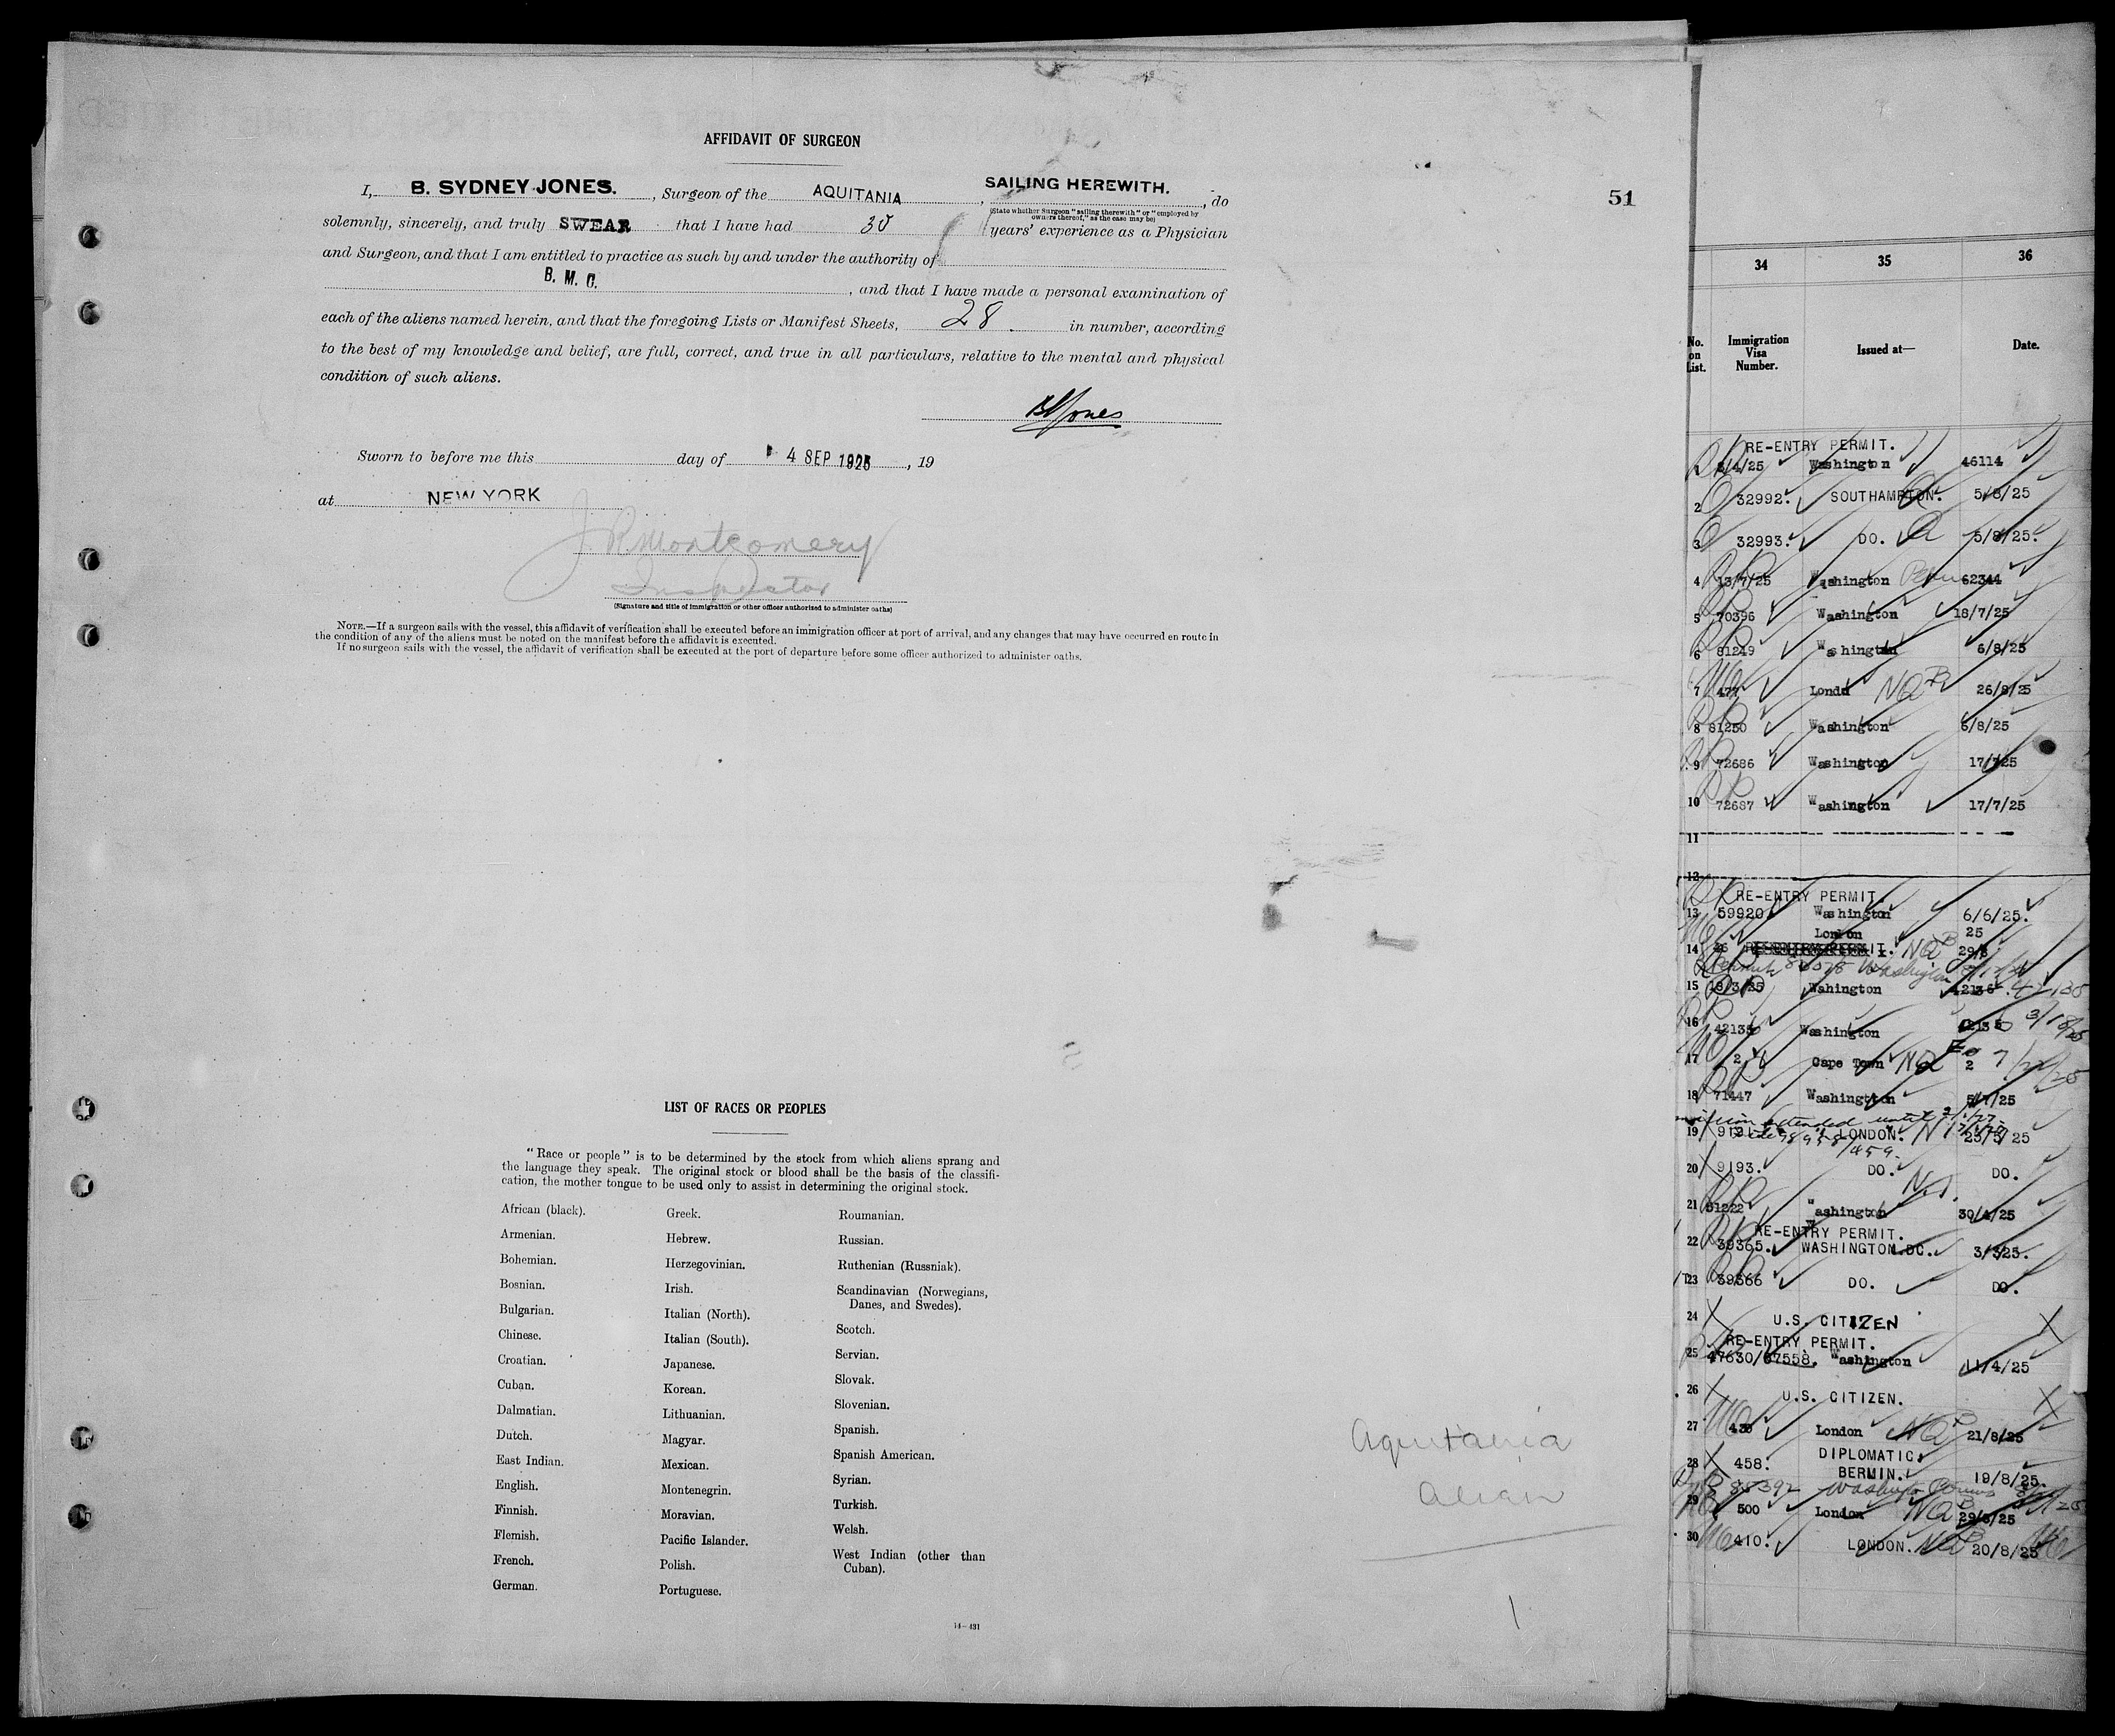 AFFIDAVIT OF SURGEON
I, B. SYDNEY JONES. , Surgeon of the AQUITANIA , SAILING HEREWITH. , do
(State whether Surgeon "sailing therewith" or "employed by owners thereof," as the case may be)
solemnly, sincerely, and truly SWEAR that I have had 30 years' experience as a Physician
and Surgeon, and that I am entitled to practice as such by and under the authority of
B. M. C. , and that I have made a personal examination of
each of the aliens named herein, and that the foregoing Lists or Manifest Sheets, 28 in number, according
to the best of my knowledge and belief, are full, correct, and true in all particulars, relative to the mental and physical
condition of such aliens.
BSJones
Sworn to before me this day of 4 SEP 1925 , 19
at NEW YORK
J. R. Montgomery
Inspector
(Signature and title of immigration or other officer authorized to administer oaths)
NOTE.—If a surgeon sails with the vessel, this affidavit of verification shall be executed before an immigration officer at port of arrival, and any changes that may have occurred en route in
the condition of any of the aliens must be noted on the manifest before the affidavit is executed.
If no surgeon sails with the vessel, the affidavit of verification shall be executed at the port of departure before some officer authorized to administer oaths.
51
LIST OF RACES OR PEOPLES
"Race or people" is to be determined by the stock from which aliens sprang and
the language they speak. The original stock or blood shall be the basis of the classifi-
cation, the mother tongue to be used only to assist in determining the original stock.
African (black).
Armenian.
Bohemian.
Bosnian.
Bulgarian.
Chinese.
Croatian.
Cuban.
Dalmatian.
Dutch.
East Indian.
English.
Finnish.
Flemish.
French.
German.
Greek.
Hebrew.
Herzegovinian.
Irish.
Italian (North).
Italian (South).
Japanese.
Korean.
Lithuanian.
Magyar.
Mexican.
Montenegrin.
Moravian.
Pacific Islander.
Polish.
Portuguese.
Roumanian.
Russian.
Ruthenian (Russniak).
Scandinavian (Norwegians,
Danes, and Swedes).
Scotch.
Servian.
Slovak.
Slovenian.
Spanish.
Spanish American.
Syrian.
Turkish.
Welsh.
West Indian (other than
Cuban).
14-431
Aquitania
Alien
34 35 36
No. on List. Immigration Visa Number. Issued at— Date.
RE-ENTRY PERMIT.
1 8/4/25 Washington 46114
2 32992. SOUTHAMPTON. 5/8/25
3 32993. DO. 5/8/25.
4 13/7/25 Washington 62344
5 70396 Washington 18/7/25
6 81249 Washington 6/8/25
7 477 Londn NQ 26/8/25
8 81250 Washington 6/8/25
9 72686 Washington 17/7/25
10 72687 Washington 17/7/25
11
12
RE-ENTRY PERMIT.
13 59920. Washington 6/6/25.
London 25
14 46 NQ 29/8
Washington
15 18/3/25 Wahington 42136
16 42135 Washington 3/18/25
17 2 Cape Town NQ 2 7/22/25
18 71447 Washington 5/7/25
extended until
19 LONDON. 23/5/25
20 9193. DO. DO.
21 51222 Washington 30/4/25
RE-ENTRY PERMIT.
22 39365. WASHINGTON.DC. 3/3/25.
23 39366 DO. DO.
24 U.S. CITIZEN
RE-ENTRY PERMIT.
25 47630/67558. Washington 11/4/25
26 U.S. CITIZEN.
27 430 London NQ 21/8/25
DIPLOMATIC.
28 458. BERMIN. 19/8/25.
29 500 London NQ 29/8/25
30 410. LONDON. NQ 20/8/25